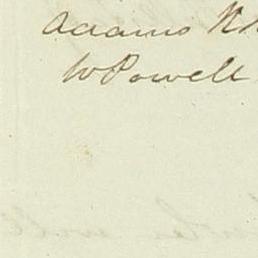 Adams
W Powell